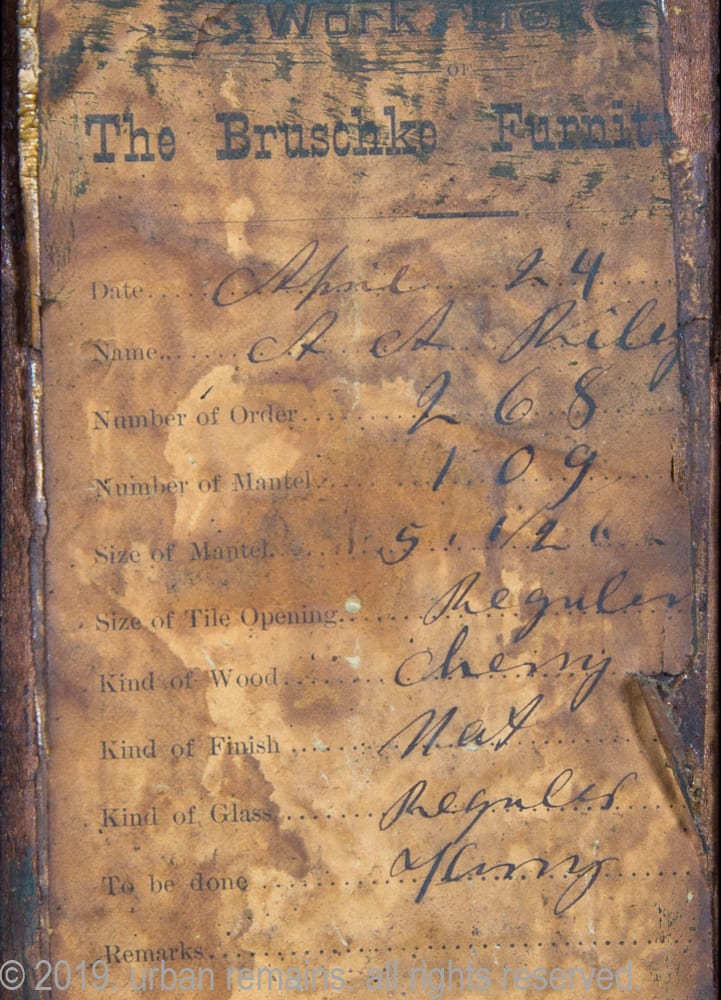 Work Ticket
OF
The Bruschke Furnitu
Date..... April 24
Name....... A A Riley
Number of Order........... 268
Number of Mantel........... 109
Size of Mantel........... 5' 1/2"
Size of Tile Opening...... Reguler
Kind of Wood........... Cherry
Kind of Finish........... Nat
Kind of Glass........... Reguler
To be done...........
Remarks...........
© 2019. urban remains. all rights reserved.